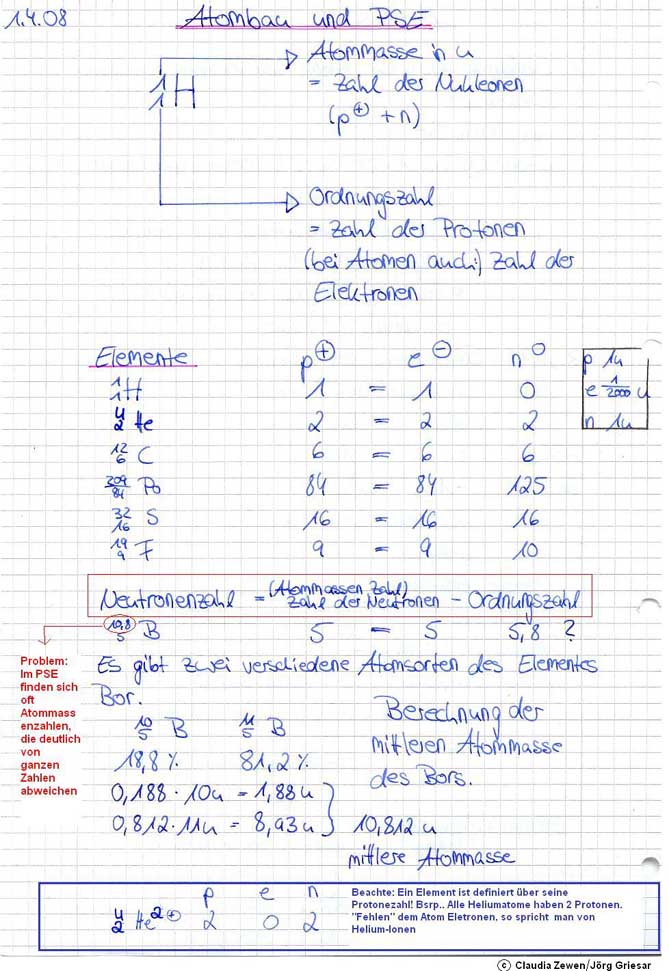 1.4.08 Atombau und PSE
Atommasse in u
1
1 H
= Zahl der Nukleonen
(p⊕ + n)
Ordnungszahl
= Zahl der Protonen
(bei Atomen auch:) Zahl der
Elektronen
Elemente p⊕ e⊖ n⁰ p 1u
1/1 H 1 = 1 0 e 1/2000 u
4/2 He 2 = 2 2 n 1u
12/6 C 6 = 6 6
209/84 Po 84 = 84 125
32/16 S 16 = 16 16
19/9 F 9 = 9 10
(Atommassen Zahl)
Neutronenzahl = Zahl der Neutronen - Ordnungszahl
10,8/5 B 5 = 5 5,8 ?
Problem:
Im PSE
finden sich
oft
Atommass
enzahlen,
die deutlich
von
ganzen
Zahlen
abweichen
Es gibt zwei verschiedene Atomsorten des Elementes
Bor.
10/5 B 11/5 B
18,8% 81,2%
Berechnung der
mittleren Atommasse
des Bors.
0,188 · 10u = 1,88u
0,812 · 11u = 8,93u } 10,812 u
mittlere Atommasse
p e n
4/2 He2⊕ 2 0 2
Beachte: Ein Element ist definiert über seine
Protonezahl! Bsrp.. Alle Heliumatome haben 2 Protonen.
"Fehlen" dem Atom Eletronen, so spricht man von
Helium-Ionen
© Claudia Zewen/Jörg Griesar